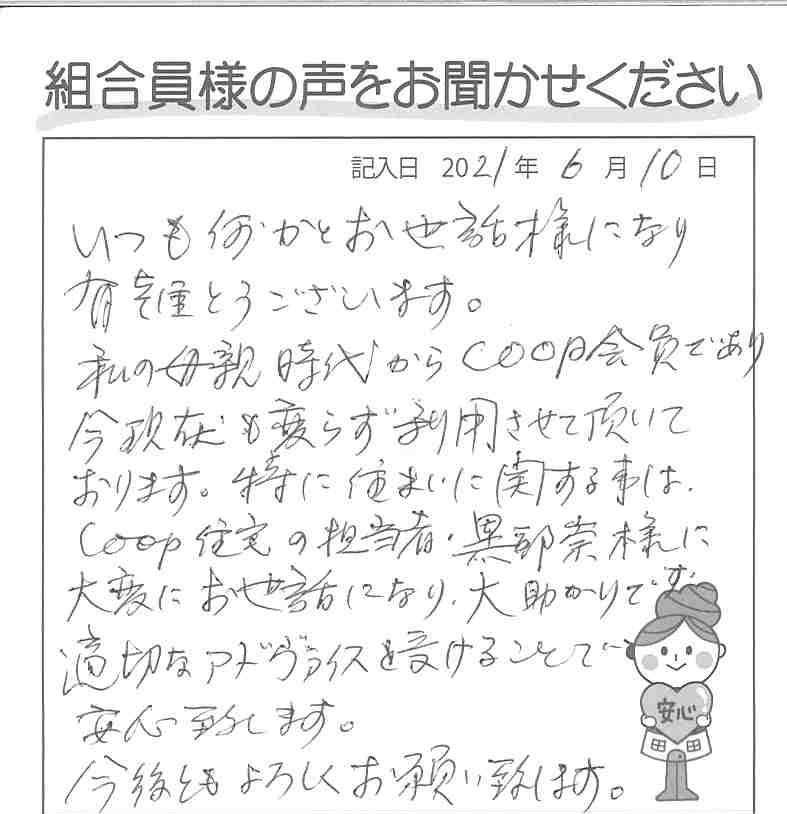 組合員様の声をお聞かせください
記入日 2021年 6月 10日
いつも何かとお世話様になり
有難とうございます。
私の母親時代からCOOP会員であり
今現在も変らず利用させて頂いて
おります。特に住まいに関する事は、
COOP住宅の担当者・黒部崇様に
大変にお世話になり、大助かりです
適切なアドヴァイスを受けることで
安心致します。
安心
今後ともよろしくお願い致します。